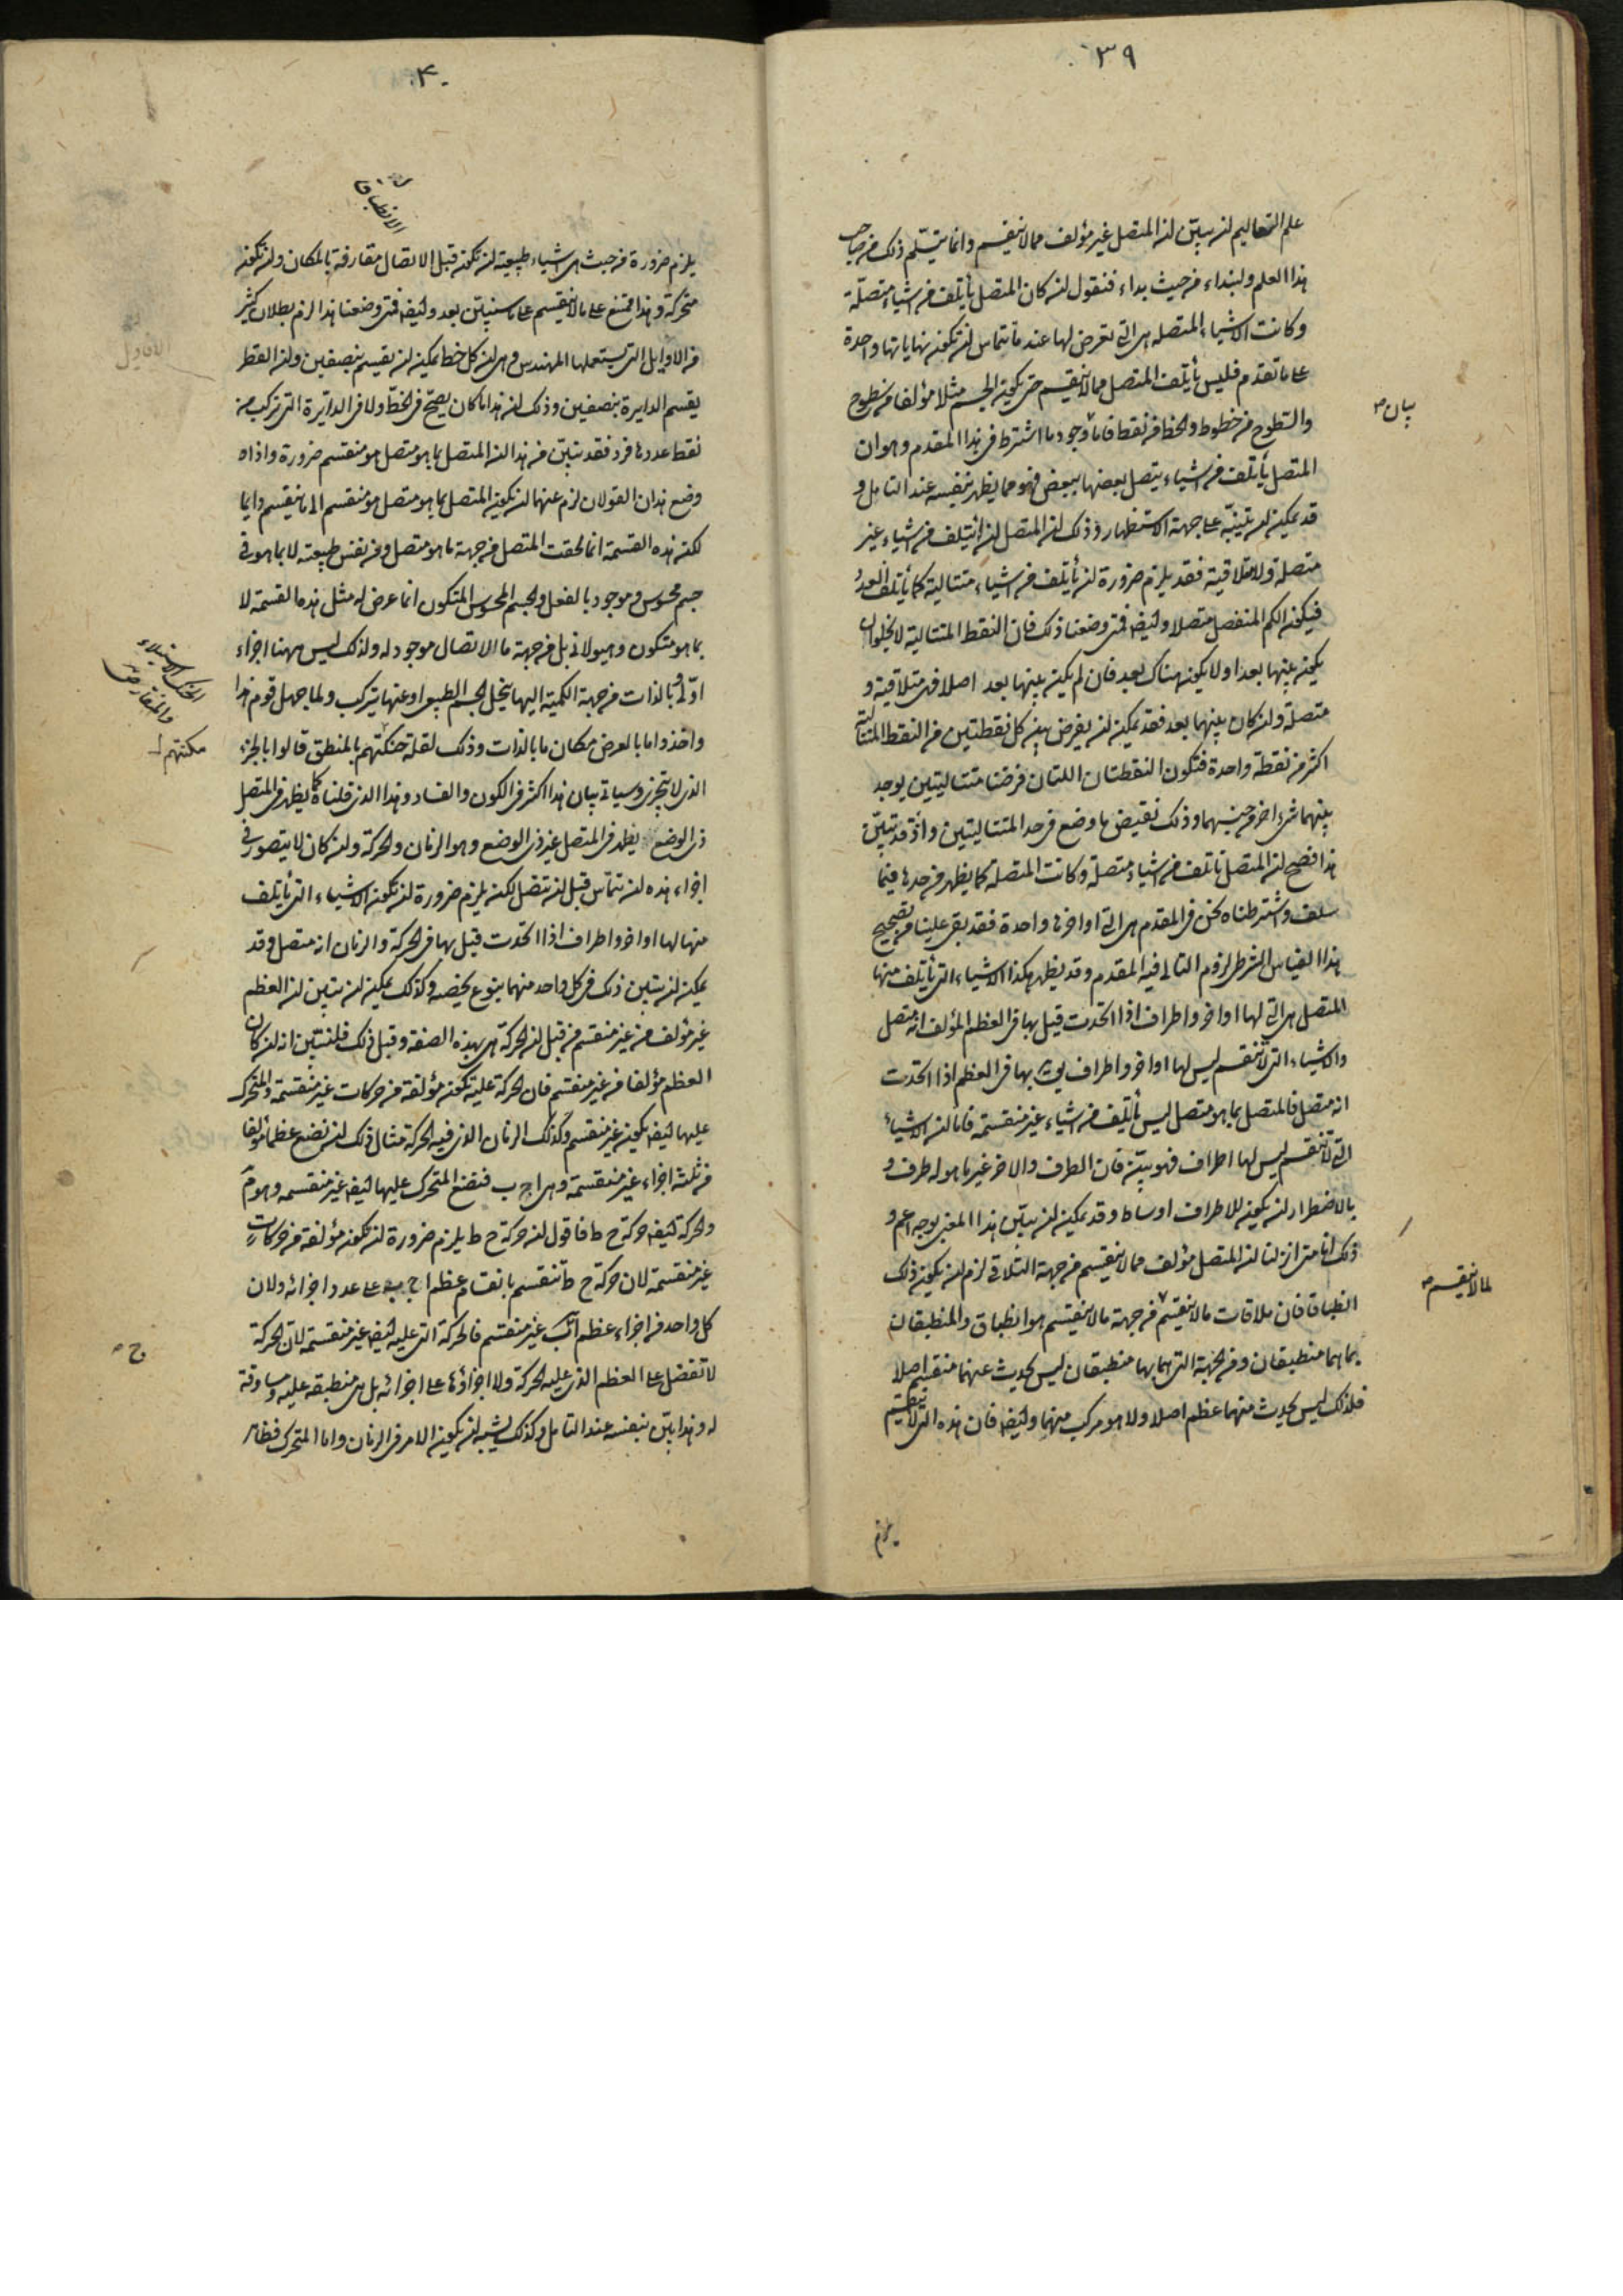 ٣٩
علم التعاليم لن يبين لن المتصل غير مؤلف مما لا ينقسم وانما يتسلم ذلك من صاحب
هذا العلم ولنبداء من حيث بداء فنقول لن كان المتصل يأتلف من اشياء متصلة
وكانت الاشياء المتصله هى التى تعرض لها عند ما تتماس لن تكون نهاياتها واحدة
على ما تقدم فليس يأتلف المتصل مما لا ينقسم حتى يكون الجسم مثلا مؤلفا من سطوح
والسطوح من خطوط والخط من نقط فاما وجود ما اشترط فى هذا المقدم وهو ان
بيان
المتصل يأتلف من اشياء يتصل بعضها ببعض فهو مما يظهر بنفسه عند التامل و
قد يمكن لن يتبينه على جهة الاستظهار وذلك لن المتصل لن ائتلف من اشياء غير
متصلة ولا متلاقية فقد يلزم ضرورة لن يأتلف من اشياء متتالية كما يأتلف العدد
فيكون الكم المنفصل متصلا وايضا فمتى وضعنا ذلك فان النقط المتتالية لا يخلو ان
يكون بينها بعد او لا يكون هناك بعد فان لم يكن بينها بعد اصلا فهى متلاقية و
متصلة ولن كان بينهما بعد فقد يمكن لن يفرض بين كل نقطتين من النقط المتتالية
اكثر من نقطة واحدة فتكون النقطتان اللتان فرضنا متتاليتين يوجد
بينهما شىء اخر من جنسهما وذلك نقيض ما وضع فى حد المتتاليتين واذ قد تبين
هذا فصح لن المتصل يأتلف من اشياء متصلة وكانت المتصلة كما يظهر من حدها فيما
سلف واشترطناه نحن فى المقدم هى التى اواخرها واحدة فقد بقى علينا من تصحيح
هذا القياس الشرطى لزوم التالى فيه المقدم وقد يظهر هكذا الاشياء التى يأتلف منها
المتصل هى التى لها اواخر واطراف اذا اتحدت قيل بها فى العظم المؤلف انه متصل
والاشياء التى لا تنقسم ليس لها اواخر واطراف بها فى العظم اذا اتحدت
انه متصل فالمتصل بما هو متصل ليس يأتلف من اشياء غير منقسمة فاما لن الاشياء
التى لا تنقسم ليس لها اطراف فهو بين فان الطرف والاخر غير ما هو له طرف و
بالاضطرار لن يكون للاطراف اوساط وقد يمكن لن يبين هذا المعنى بوجه اعم و
ذلك انا متى انزلنا لن المتصل مؤلف مما لا ينقسم من جهة التلاقى لزم لن يكون ذلك
انطباقا فان ملاقات ما لا ينقسم من جهة ما لا ينقسم هو انطباق والمنطبقان
لما لا ينقسم
بما هما منطبقان ومن الجهة التى هما بها منطبقان ليس يحدث عنهما منقسم اصلا
فلذلك ليس يحدث منهما عظم اصلا ولا هو مركب منهما وايضا فان هذه التى لا تنقسم
يلزم
٤٠
يلزم ضرورة من حيث هى اشياء طبيعة لن تكون قبل الاتصال مفارقة بالمكان ولن تكون
متحركة وهذا ممتنع على ما لا ينقسم على ما سنبين بعد وايضا فمتى وضعنا هذا لزم بطلان كثير
من الاوايل التى يستعملها المهندس وهى لن كل خط يمكن لن يقسم بنصفين ولن القطر
يقسم الدايرة بنصفين وذلك لن هذا ما كان يصح فى الخط ولا فى الدائرة التى تركب من
نقط عددها فرد فقد تبين من هذا لن المتصل بما هو متصل هو منقسم ضرورة واذا
وضع هذان القولان لزم عنها لن يكون المتصل بما هو متصل هو منقسم الى ما ينقسم دايما
لكن هذه القسمة انما لحقت المتصل من جهة ما هو متصل ومن نفس طبيعته لا بما هو فى
جسم محسوس وموجود بالفعل والجسم المحسوس المتكون انما عرض له مثل هذه القسمة لا
بما هو متكون وهيولانى بل من جهة ما الاتصال موجود له ولذلك ليس ههنا اجزاء
اولى وبالذات من جهة الكمية اليها ينحل الجسم الطبيعى او عنها يتركب ولما جهل قوم هذا
واخذوا ما بالعرض مكان ما بالذات وذلك لقلة حنكتهم بالمنطق قالوا بالجزء
مكنتهم
الذى لا يتجزى وسياتى بيان هذا اكثر فى الكون والفساد وهذا الذى قلناه كما يظهر فى المتصل
ذى الوضع يظهر فى المتصل غير ذى الوضع وهو الزمان والحركة ولن كان لا يتصور فى
اجزاء هذه لن تتماس قبل لن تتصل لكن يلزم ضرورة لن تكون الاشياء التى يأتلف
منها لها اواخر واطراف اذا اتحدت قيل بها فى الحركة والزمان انه متصل وقد
يمكن لن يتبين ذلك فى كل واحد منهما بنوع يخصه وكذلك يمكن لن يتبين لن العظم
غير مؤلف من غير منقسم من قبل لن الحركة هى بهذه الصفة وقبل ذلك فلنتبين انه لن كان
العظم مؤلفا من غير منقسم فان الحركة عليه تكون مؤلفة من حركات غير منقسمة والمتحرك
عليها ايضا يكون غير منقسم وكذلك الزمان الذى فيه الحركة مثال ذلك لن نضع عظما مؤلفا
من ثلثة اجزاء غير منقسمة وهى ا ج ب فنضع المتحرك عليها ايضا غير منقسمه وهو م
والحركة ايضا حركة ح ط فاقول لن حركة ح ط يلزم ضرورة لن تكون مؤلفة من حركات
غير منقسمة لان حركة ح ط تنقسم بانقسام عظم ا ج ب على عدد اجزائه ولان
كل واحد من اجزاء عظم ا ب غير منقسم فالحركة التى عليه ايضا غير منقسمة لان الحركة
ج
لا تفضل على العظم الذى عليه الحركة ولا اجزاؤها على اجزائه بل هى منطبقه عليه ومساوقة
له وهذا بين بنفسه عند التامل وكذلك يشبه لن يكون الامر فى الزمان واما المتحرك فظاهر